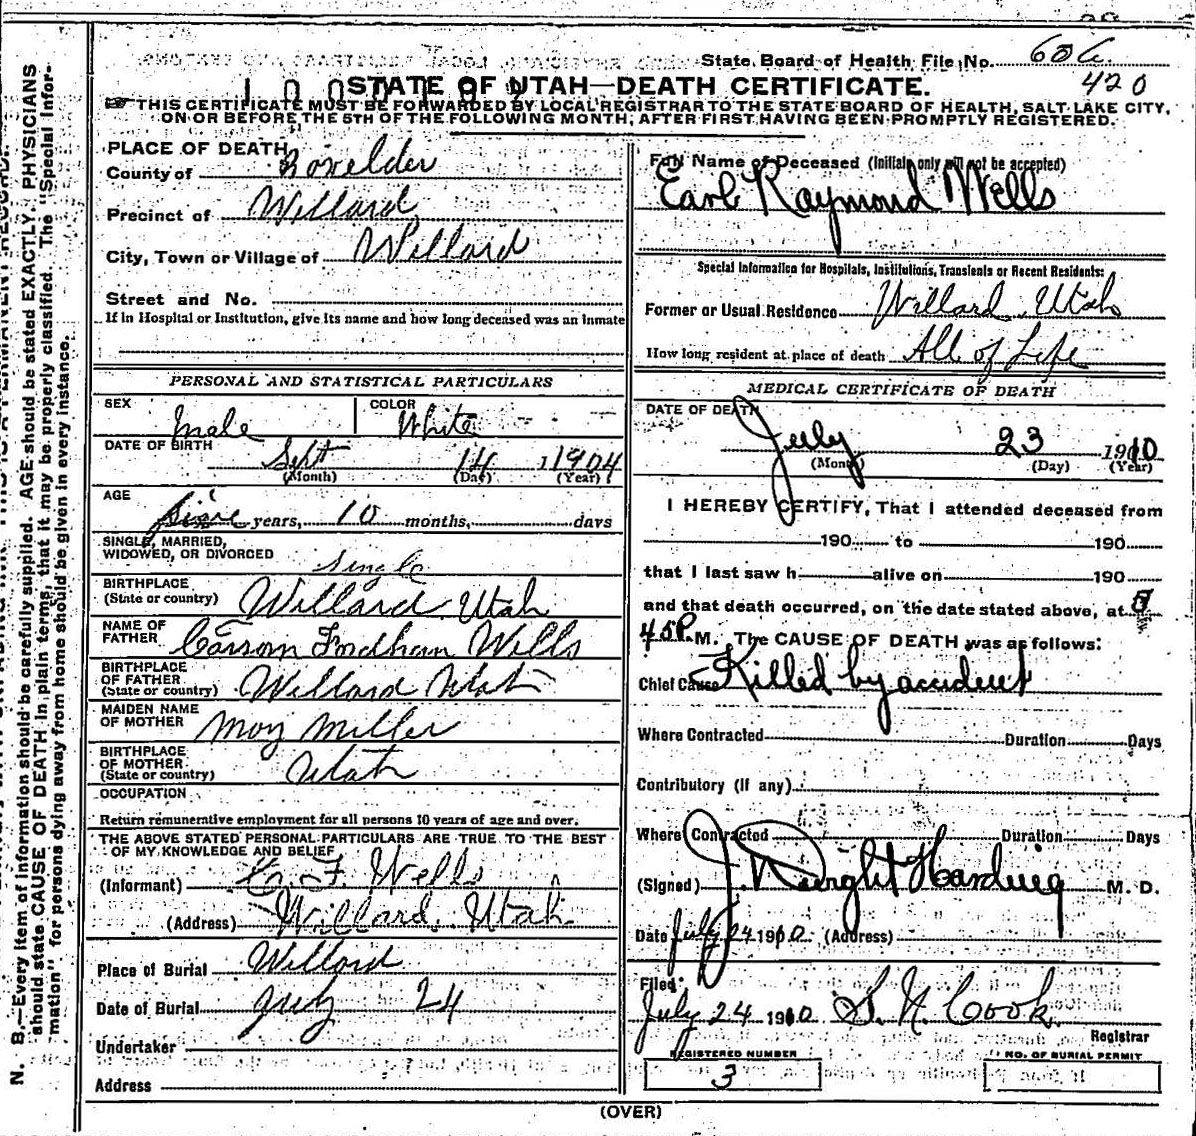 State Board of Health File No. 60 C.
420
STATE OF UTAH—DEATH CERTIFICATE.
THIS CERTIFICATE MUST BE FORWARDED BY LOCAL REGISTRAR TO THE STATE BOARD OF HEALTH, SALT LAKE CITY,
ON OR BEFORE THE 5TH OF THE FOLLOWING MONTH, AFTER FIRST HAVING BEEN PROMPTLY REGISTERED.
PLACE OF DEATH
County of Boxelder
Precinct of Willard
City, Town or Village of Willard
Street and No.
If in Hospital or Institution, give its name and how long deceased was an inmate
PERSONAL AND STATISTICAL PARTICULARS
SEX Male COLOR White
DATE OF BIRTH Sept 14 1904
(Month) (Day) (Year)
AGE years, 10 months, days
SINGLE, MARRIED,
WIDOWED, OR DIVORCED Single
BIRTHPLACE
(State or country) Willard Utah
NAME OF
FATHER Carsom Fordham Wells
BIRTHPLACE
OF FATHER
(State or country) Willard Utah
MAIDEN NAME
OF MOTHER May Miller
BIRTHPLACE
OF MOTHER
(State or country) Utah
OCCUPATION
Return remunerative employment for all persons 10 years of age and over.
THE ABOVE STATED PERSONAL PARTICULARS ARE TRUE TO THE BEST
OF MY KNOWLEDGE AND BELIEF
(Informant) F. Wells
(Address) Willard, Utah
Place of Burial Willard
Date of Burial July 24
Undertaker
Address
Full Name of Deceased (Initials only will not be accepted)
Earl Raymond Wells
Special Information for Hospitals, Institutions, Transients or Recent Residents:
Former or Usual Residence Willard, Utah
How long resident at place of death All of Life
MEDICAL CERTIFICATE OF DEATH
DATE OF DEATH
July 23 1910
(Month) (Day) (Year)
I HEREBY CERTIFY, That I attended deceased from
190 to 190
that I last saw h alive on 190
and that death occurred, on the date stated above, at 8
45P. M. The CAUSE OF DEATH was as follows:
Chief Cause Killed by accident
Where Contracted Duration Days
Contributory (if any)
Where Contracted Duration Days
(Signed) J. Dwight Harding M. D.
Date July 24 1910 (Address)
Filed
July 24 1910 S. N. Cook
Registrar
REGISTERED NUMBER
3
NO. OF BURIAL PERMIT
(OVER)
N. B.—Every item of information should be carefully supplied. AGE should be stated EXACTLY. PHYSICIANS
should state CAUSE OF DEATH in plain terms, that it may be properly classified. The "Special Infor-
mation" for persons dying away from home should be given in every instance.